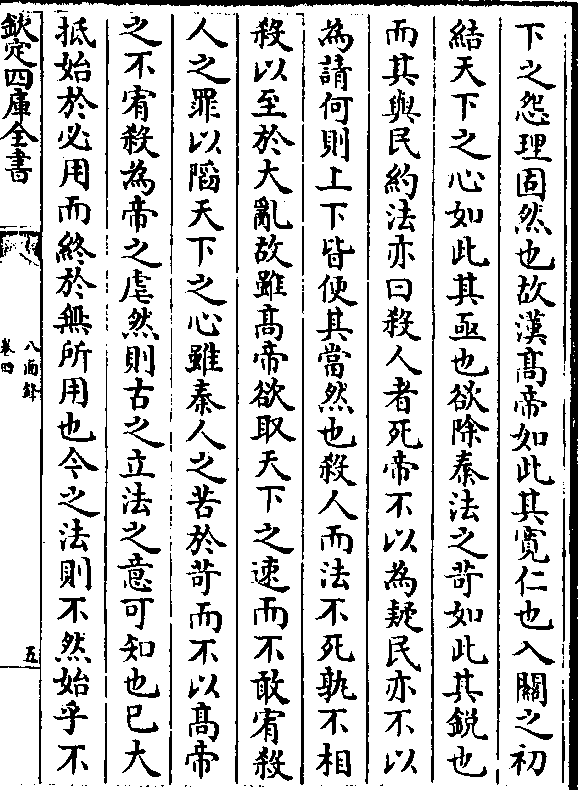 下之怨理固然也故漢髙帝如此其寛仁也入關之初
結天下之心如此其亟也欲除秦法之苛如此其鋭也
而其與民約法亦曰殺人者死帝不以為疑民亦不以
為請何則上下皆便其當然也殺人而法不死孰不相
殺以至於大亂故雖髙帝欲取天下之速而不敢宥殺
人之罪以謟天下之心雖秦人之苦於苛而不以髙帝
之不宥殺為帝之虐然則古之立法之意可知也已大
抵始於必用而終於無所用也今之法則不然始乎不
欽定四庫全書
八面鋒
卷四
五